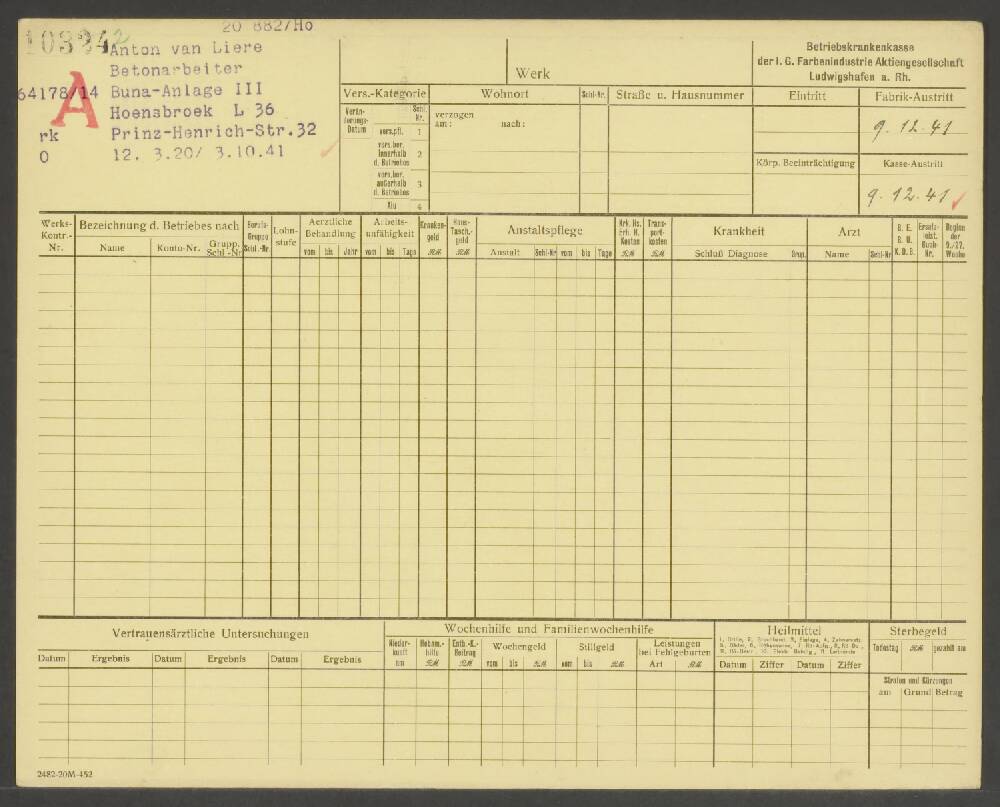 20 882/Ho
Anton van Liere
Betonarbeiter
64178/14 Buna-Anlage III
Hoensbroek L 36
rk Prinz-Henrich-Str.32
O 12. 3.20/ 3.10.41
A
Werk
Betriebskrankenkasse
der I. G. Farbenindustrie Aktiengesellschaft
Ludwigshafen a. Rh.
Vers.-Kategorie Wohnort Schl-Nr. Straße u. Hausnummer Eintritt Fabrik-Austritt
Verän-
derungs-
Datum
Schl.
Nr.
vers.pfl. 1
vers.ber.
innerhalb
d. Betriebes 2
vers.ber.
außerhalb
d. Betriebes 3
Alu 4
verzogen
am: nach:
9. 12. 41
Körp. Beeinträchtigung Kasse-Austritt
9. 12. 41
Werks-
Kontr.-
Nr.
Bezeichnung d. Betriebes nach
Name Konto-Nr. Grupp.
Schl.-Nr
Berufs-
Gruppe
Schl.-Nr.
Lohn-
stufe
Aerztliche
Behandlung
vom bis Jahr
Arbeits-
unfähigkeit
vom bis Tage
Kranken-
geld
RM
Haus-
Tasch.-
geld
RM
Anstaltspflege
Anstalt Schl-Nr vom bis Tage
Krk. Hs.
Erh. H.
Kosten
RM
Trans-
port-
kosten
RM
Krankheit
Schluß Diagnose Grup.
Arzt
Name Schl-Nr
B. E.
B. U.
K. D. B.
Ersatz-
leist.
Buch-
Nr.
Beginn
der
9./27.
Woche
Vertrauensärztliche Untersuchungen
Datum Ergebnis Datum Ergebnis Datum Ergebnis
Wochenhilfe und Familienwochenhilfe
Nieder-
kunft
am
Hebam.-
hilfe
RM
Entb.-K.-
Beitrag
RM
Wochengeld
vom bis RM
Stillgeld
vom bis RM
Leistungen
bei Fehlgeburten
Art RM
Heilmittel
Datum Ziffer Datum Ziffer
Sterbegeld
Todestag RM gezahlt am
Strafen und Kürzungen
am Grund Betrag
2482-20M-452